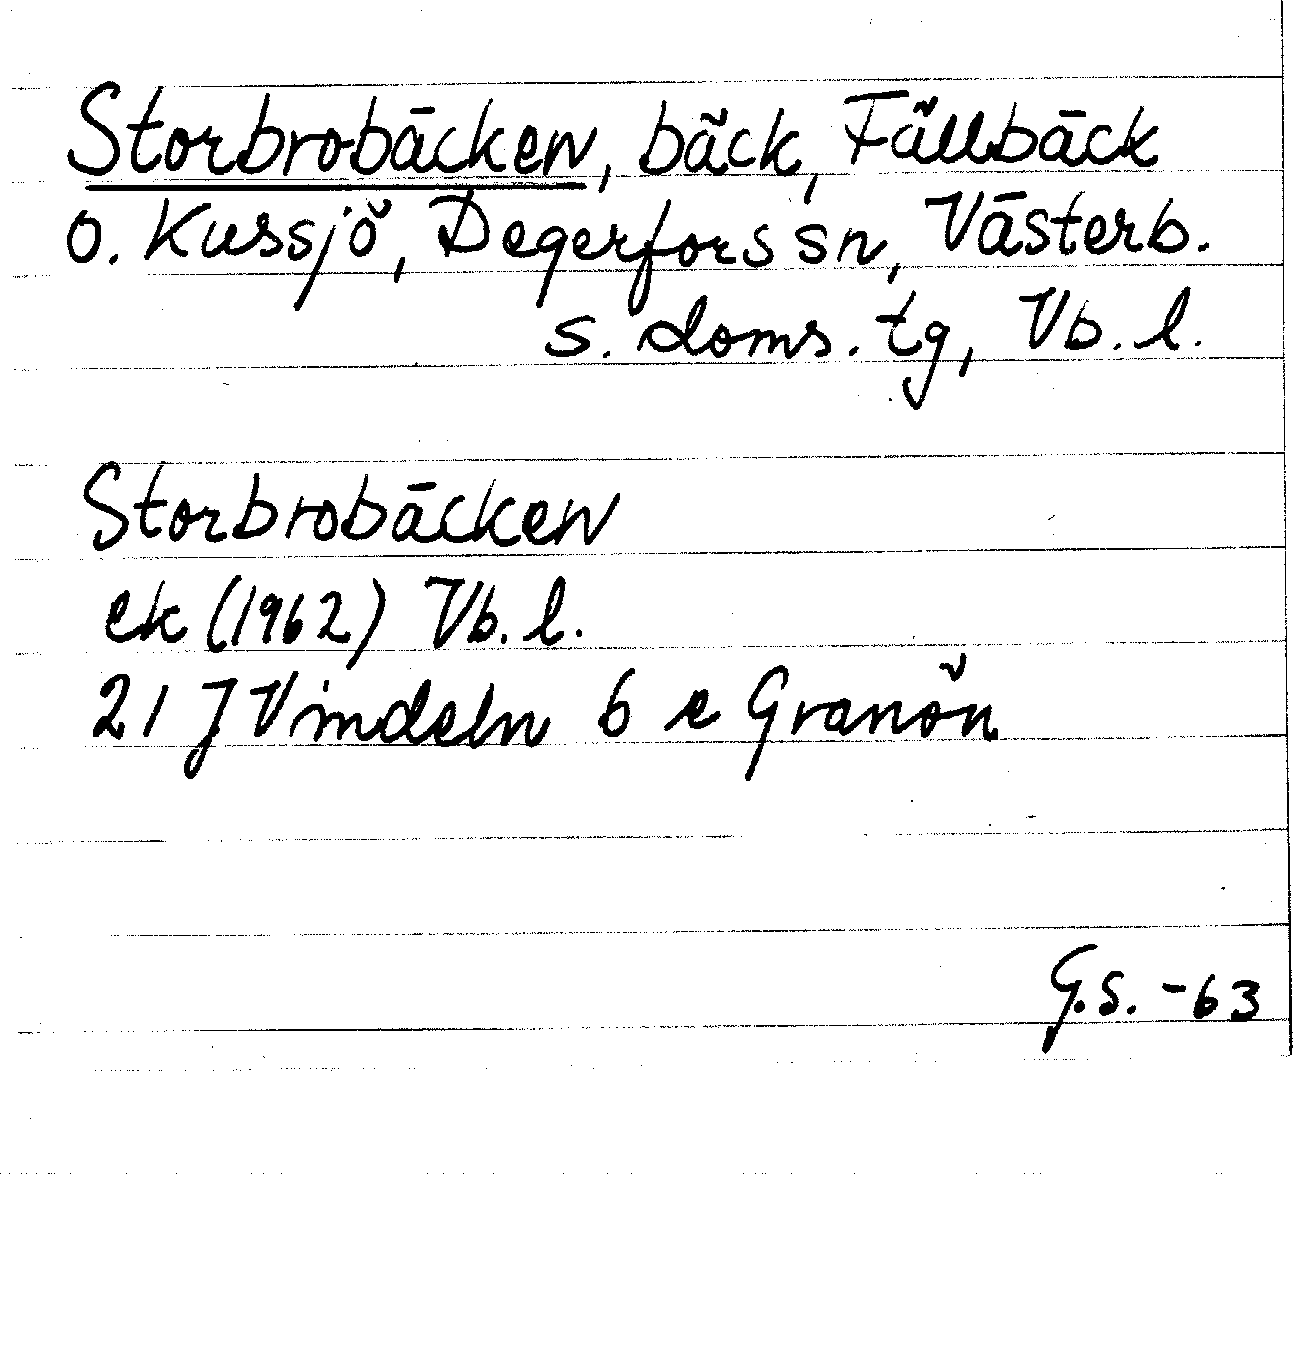 Storbrobäcken, bäck, Fällbäck
o. Kussjö, Degerfors sn, Västerb.
s. doms. tg, Vb. l.
Storbrobäcken
ek (1962) Vb. l.
21 J Vindeln 6 e Granön
G.S. -63